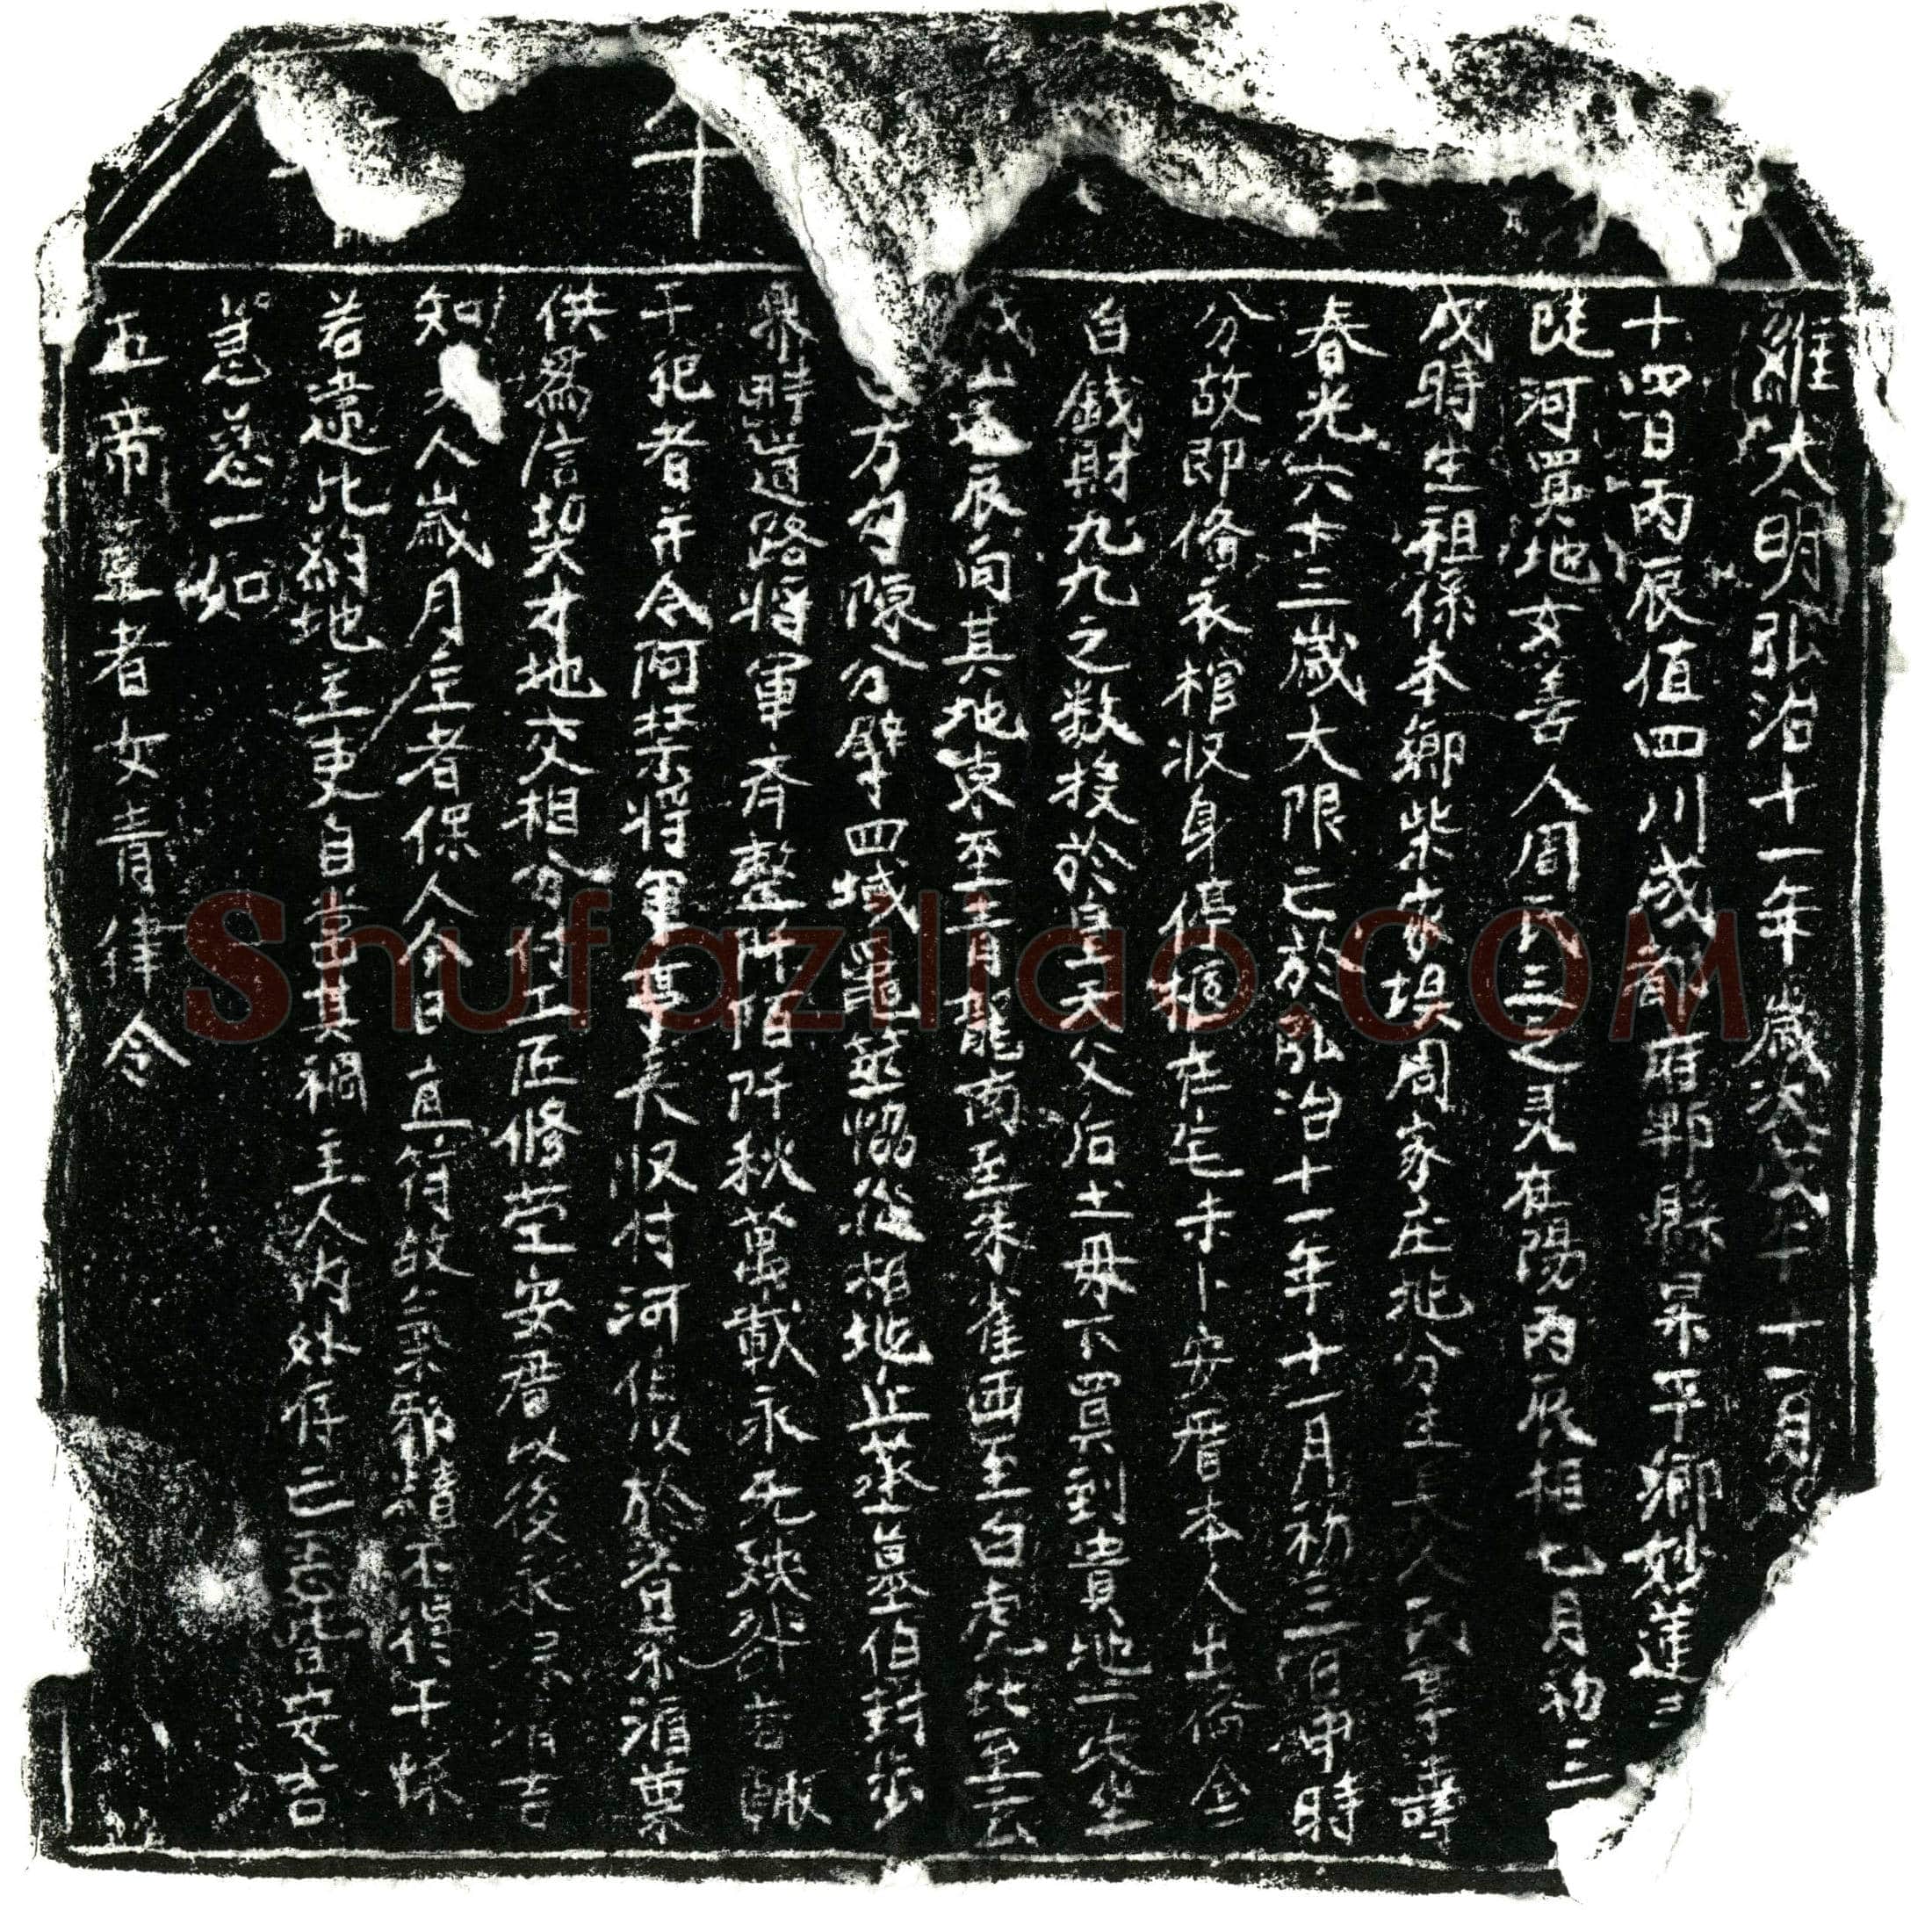 維大明弘治十一年歲次戊午十一月
十四日丙辰值四川成都府郫縣杲平鄉妙蓮
陡河買地女善人周氏三之灵在陽丙辰相七月初三
戌時生祖係本鄉柴家埧周家庄地分生長人民享壽
春光六十三歲大限亡於弘治十一年十一月初三日申時
分故即俻衣棺收身停柩在宅未卜安厝本人出俻金
白錢財九九之數投於皇天父后土母下買到貴地一穴坐
辰間其地東至青龍南至朱雀西至白虎北至玄
方勾陳分擘四域丘丞墓伯封步
界畔道路將軍齊整阡陌阡秋萬載永无殃咎若輒
干犯者并令阿禁將軍亭長收付河伯以於
供為信契才地交相分付工匠修塋安厝以後永
知人歲月主者保人今日直符故炁邪精不得干恡
若違此約地主吏自當其禍主人內外存亡悉皆安吉
急急一如
五帝主者女青律令
Shufaziliao.COM